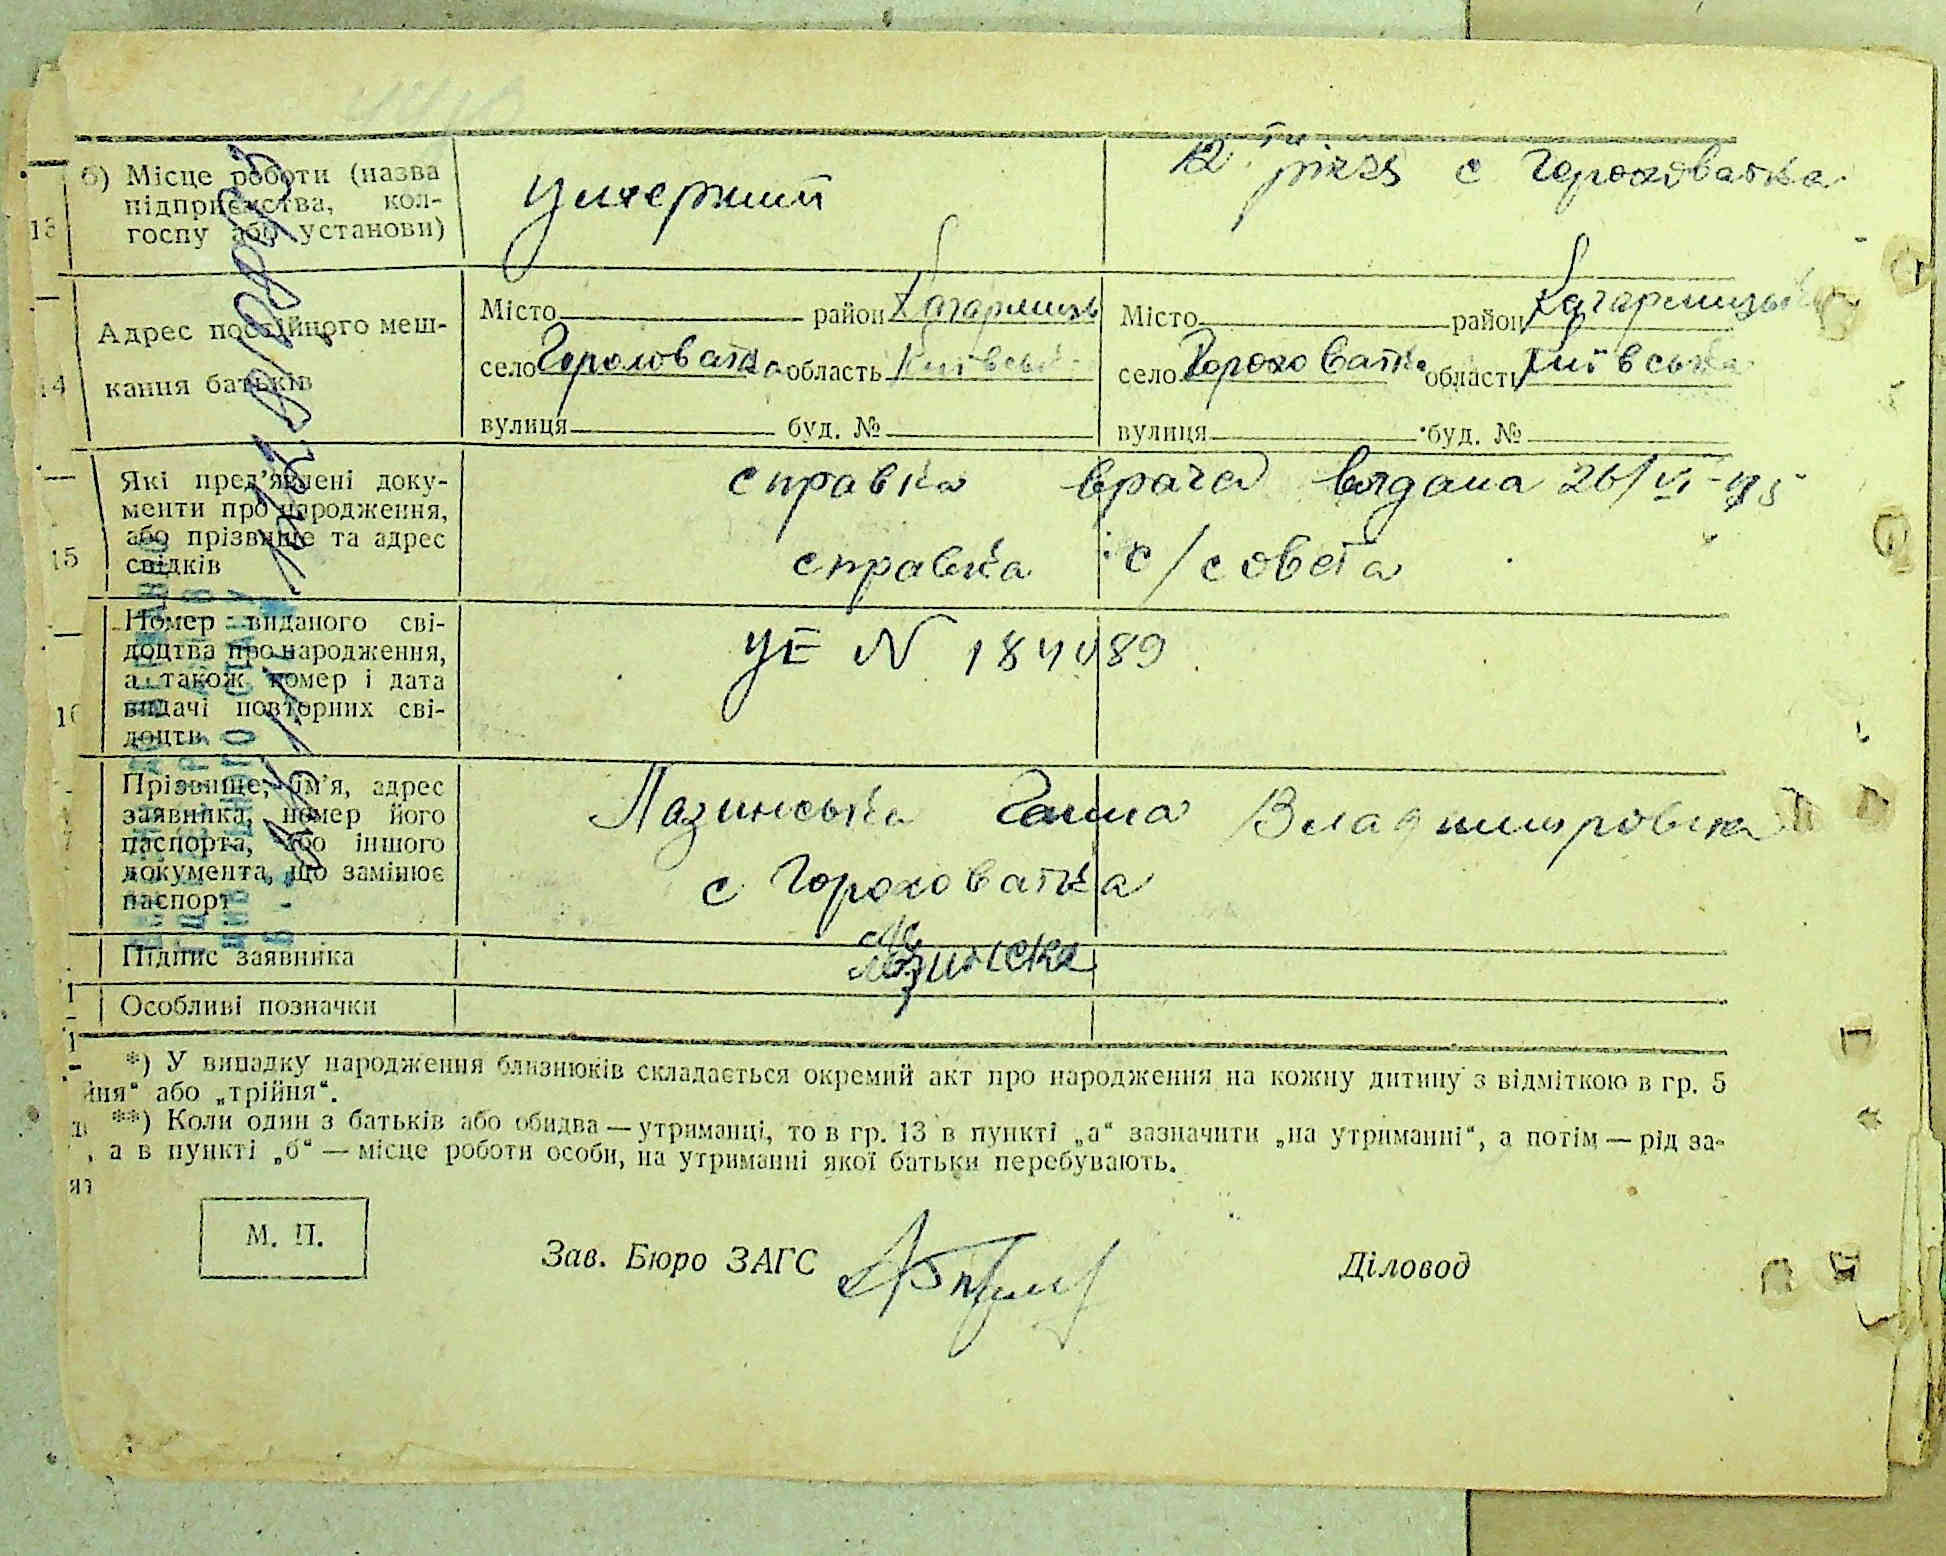 б) Місце роботи (назва
підприємства, кол-
госпу або установи)
13
с Гороховатка
Адрес постійного меш-
кання батьків
14
Місто район Кагарлицьк
село Гороховатка область Київськ
вулиця буд. №
Місто район Кагарлицьк
село Гороховатка область Київська
вулиця буд. №
Які пред'явлені доку-
менти про народження,
або прізвище та адрес
свідків
15
справка врача видана 26/VI-
справка с/совета
Номер виданого сві-
доцтва про народження,
а також номер і дата
видачі повторних сві-
доцтв
УЕ N 184089
Прізвище, ім'я, адрес
заявника, номер його
паспорта, або іншого
документа, що замінює
паспорт
Лазинська Ганна Владимировна
с Гороховатка
Підпис заявника
Лазинска
Особливі позначки
*) У випадку народження близнюків складається окремий акт про народження на кожну дитину з відміткою в гр. 5
йня“ або „трійня“.
**) Коли один з батьків або обидва — утриманці, то в гр. 13 в пункті „а“ зазначити „на утриманні“, а потім — рід за-
, а в пункті „б“ — місце роботи особи, на утриманні якої батьки перебувають.
М. П.
Зав. Бюро ЗАГС
Діловод